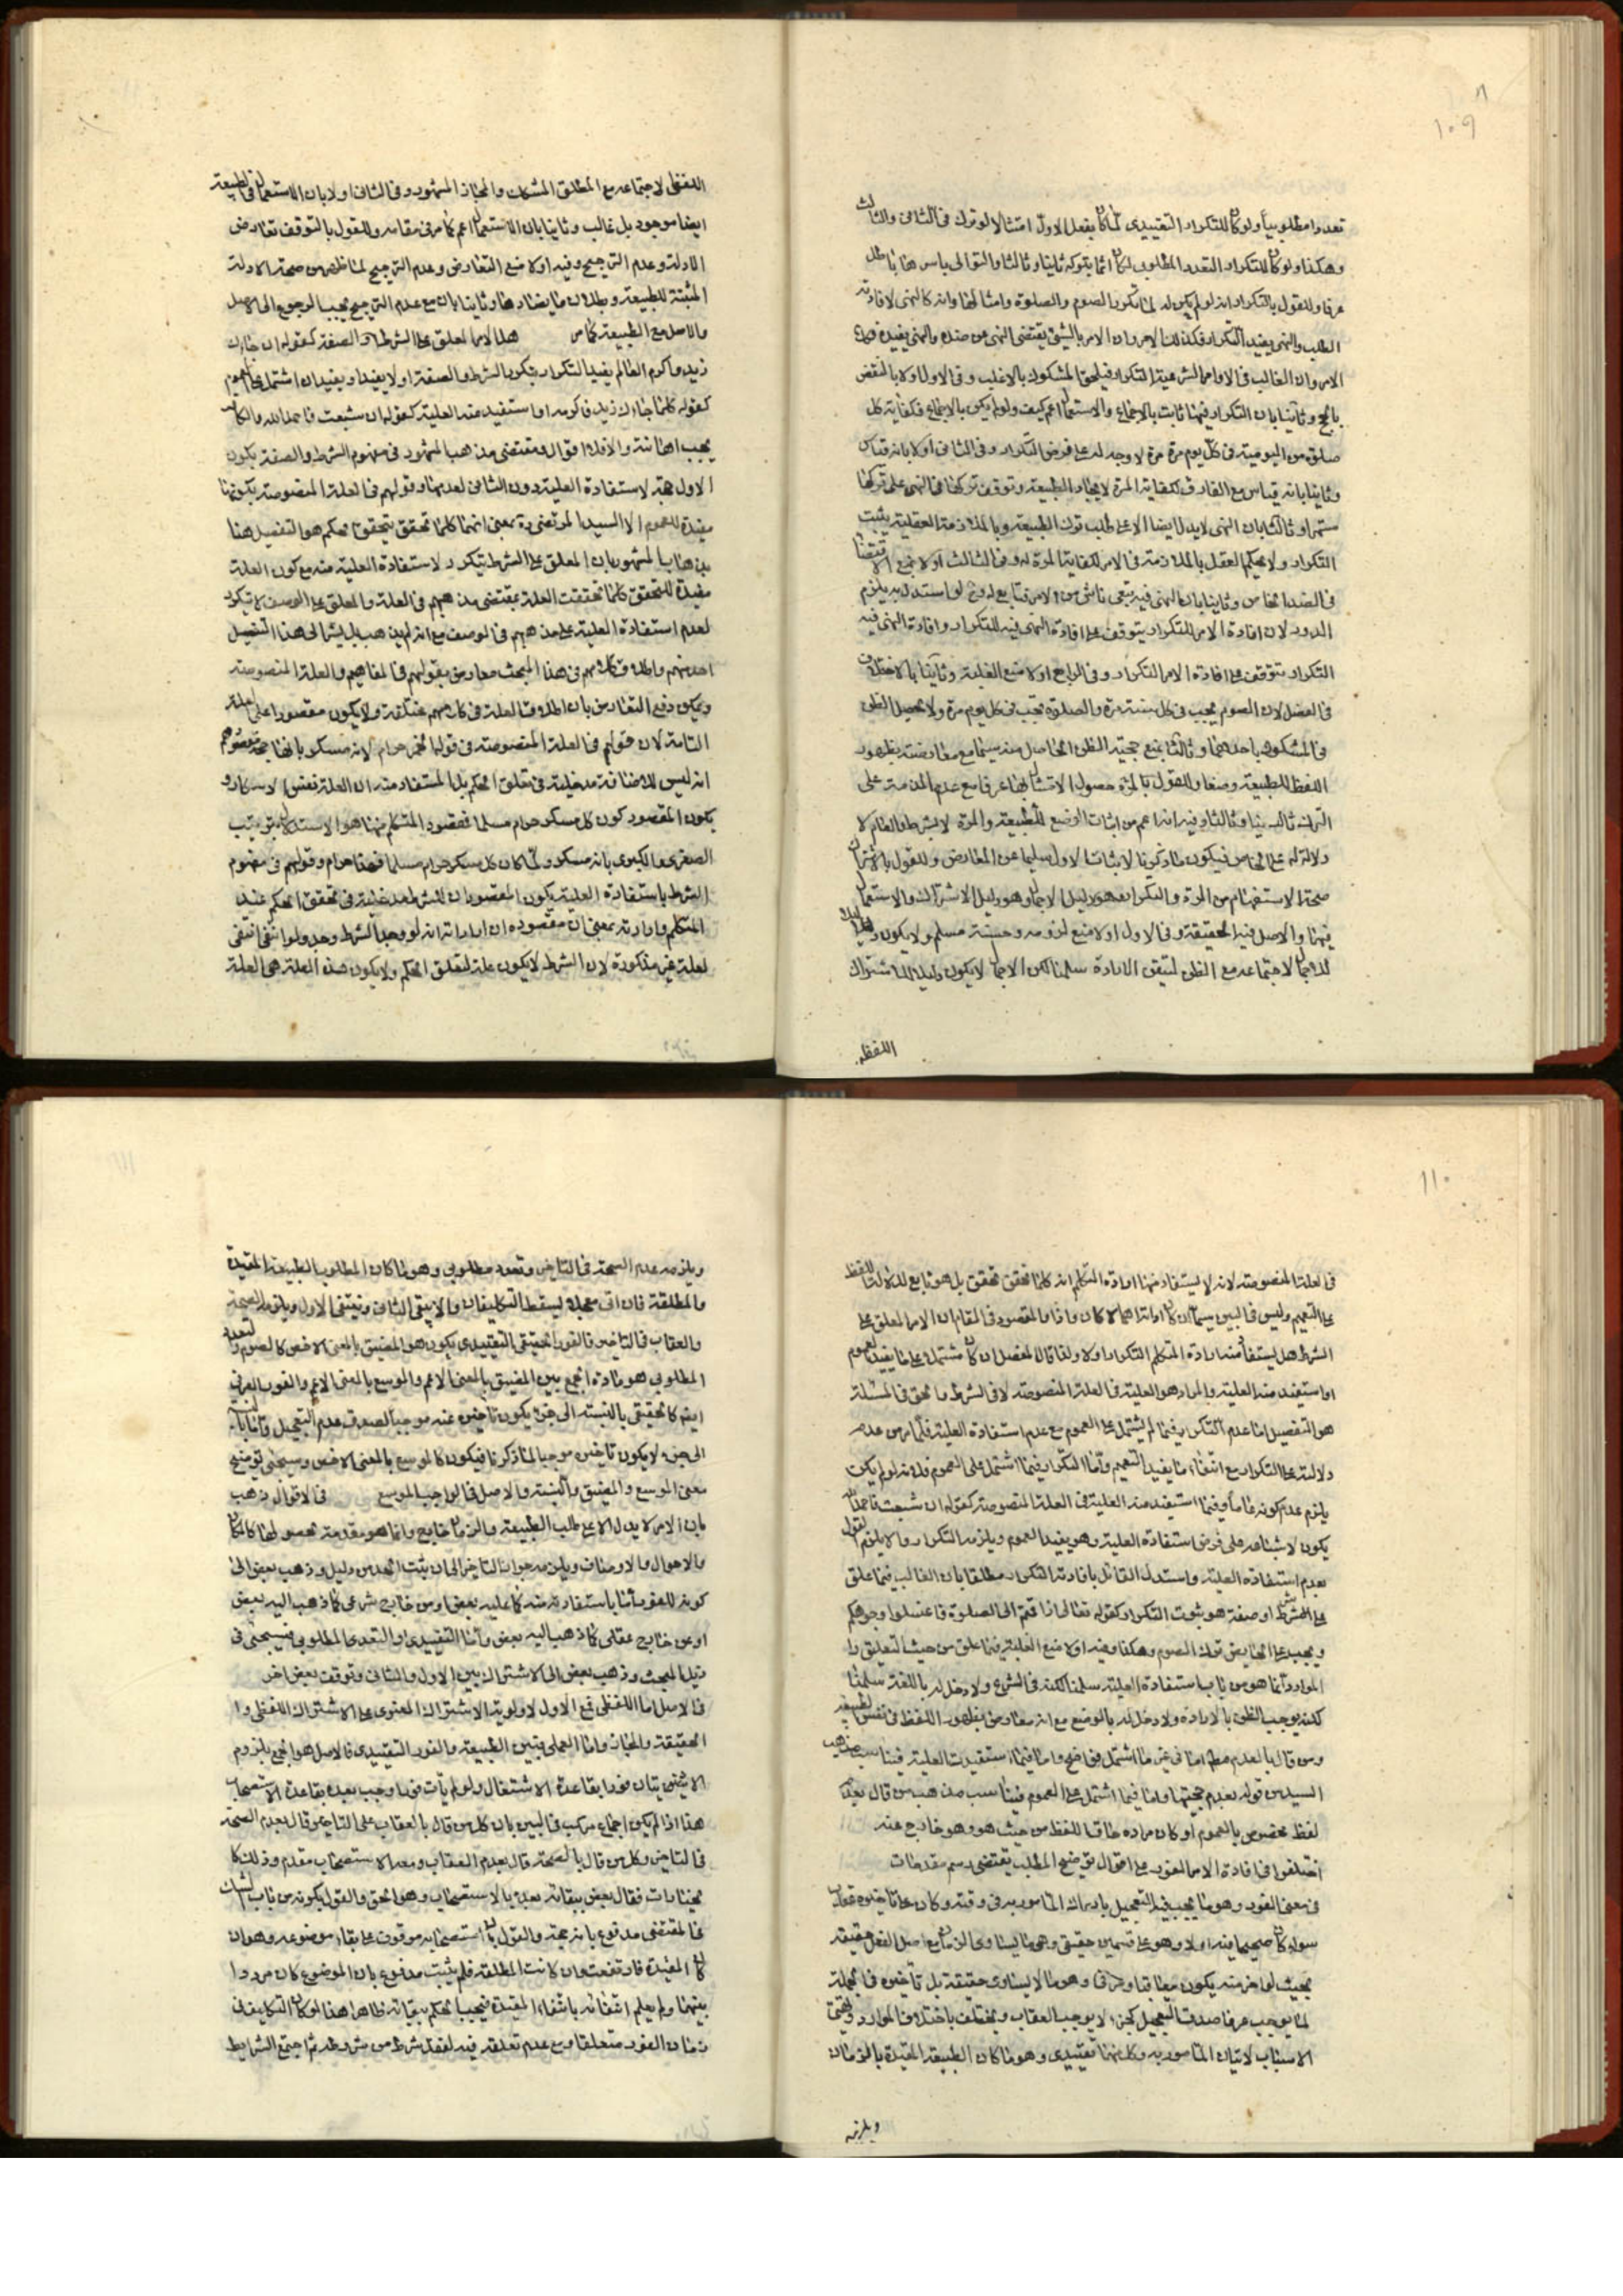 ١٠٩
تعددا مطلوبيا ولو كان للتكرار التقييدى لما كان يفعل الاول امتثالا لو ترك فى الثانى والثالث
وهكذا ولو كان للتكرار التعدد المطلوب لكان اثما بتركه ثانيا وثالثا والتوالى باسرها باطل
عرفا وللقول بالتكرار انه لو لم يكن له لما تكرر الصوم والصلوة وامثالها وانه كالنهى لافادته
الطلب والنهى يفيد التكرار فكذلك الامر وان الامر بالشئ يقتضى النهى عن ضده والنهى يفيده فكذا
الامر وان الغالب فى الاوامر الشرعية التكرار فيلحق المشكوك بالاغلب وفى الاول اولا بالنقض
بالحج وثانيا بان التكرار فيها ثابت بالاجماع والاستعمال اعم كيف ولو لم يكن بالاجماع فكفاية كل
صلوة من اليومية فى كل يوم مرة مرة لا وجه له على فرض التكرار وفى الثانى اولا بانه قياس
وثانيا بانه قياس مع الفارق لكفاية المرة لايجاد الطبيعة وتوقف تركها فى النهى على تركها
مستمرا وثالثا بان النهى لا يدل ايضا الا على طلب ترك الطبيعة وبالملازمة العقلية يثبت
التكرار ولا يحكم العقل بالملازمة فى الامر لكفاية المرة له وفى الثالث اولا بمنع الاقتضاء
فى الضد الخاص وثانيا بان النهى فيه تبعى ناش من الامر فتابع له وح لو استدل به يلزم
الدور لان افادة الامر للتكرار يتوقف على افادة النهى فيه للتكرار وافادة النهى فيه
التكرار يتوقف على افادة الامر التكرار وفى الرابع اولا منع الغلبة وثانيا بالاختلاف
فى الفصل لان الصوم يجب فى كل سنة مرة والصلوة تجب فى كل يوم مرة ولا يحصل الظن
فى المشكوك باحدهما وثالثا بمنع حجية الظن الحاصل منه سيما مع معارضته بظهور
اللفظ للطبيعة وضعا وللقول بالمرة حصول الامتثال بها عرفا مع عدم المذمة على
الترك ثانيا وثالثا وفيه انه اعم من اثبات الوضع للطبيعة والمرة لا بشرط والعام لا
دلالة له على الخاص فيكون ما ذكرنا لاثبات الاول سليما عن المعارض وللقول بالاشتراك
صحة الاستفهام من المرة والتكرار وهو دليل الاجمال وهو دليل الاشتراك والاستعمال
فيهما والاصل فيه الحقيقة وفى الاول اولا منع لزومه وحسنه مسلم ولا يكون دليلا
للاجمال لاجتماعه مع الظن لتيقن الارادة سلمنا لكن الاجمال لا يكون دليلا للاشتراك
اللفظى
اللفظى لاجتماعه مع المطلق المشكك والمجاز المشهور وفى الثانى اولا بان الاستعمال فى الطبيعة
ايضا موجود بل غالب وثانيا بان الاستعمال اعم كما مر فى مقامه وللقول بالتوقف تعارض
الادلة وعدم الترجيح وفيه اولا منع التعارض وعدم الترجيح لما ظهر من صحة الادلة
المثبتة للطبيعة وبطلان ما يضادها وثانيا بان مع عدم الترجيح يجب الرجوع الى الاصل
والاصل مع الطبيعة كما مر هل الامر المعلق على الشرط او الصفة كقوله ان جاءك
زيد واكرم العالم يفيد التكرار بتكرر الشرط والصفة او لا يفيد او يفيد ان اشتمل على العموم
كقوله كلما جاءك زيد فاكرمه او استفيد منه العلية كقوله ان شبعت فاحمد الله والكافر
يجب اهانته والا فلا اقوال ومقتضى مذهب المشهور فى مفهوم الشرط والصفة يكون
الاول حجة لاستفادة العلية دون الثانى لعدمها وقولهم فى العلة المنصوصة بكونها
مفيدة للعموم الا السيد المرتضى ره بمعنى انها كلما تحقق يتحقق الحكم هو التفصيل هنا
بين هنا بالمشهور بان المعلق على الشرط يتكرر لاستفادة العلية منه مع كون العلة
مفيدة للتحقق كلما تحققت العلة بمقتضى مذهبهم فى العلة والمعلق على الوصف لا يتكرر
لعدم استفادة العلية على مذهبهم فى الوصف مع انه لم يذهب بل يشر الى هذا التفصيل
احد منهم واطلاق كلامهم فى هذا المبحث معارض بقولهم فى المفاهيم والعلة المنصوصة
ويمكن دفع التعارض بان اطلاق العلة فى كلامهم مختلفة ولا يكون مقصورا على العلة
التامة لان قولهم فى العلة المنصوصة فى قولنا الخمر حرام لانه مسكر بانها حجة مقصودهم
انه ليس للاضافة مدخلية فى تعلق الحكم بل المستفاد منه ان العلة نفس الاسكار و
يكون المقصود كون كل مسكر حرام مسلما فمقصود المتكلم منها هو الاستدلال بترتيب
الصغرى والكبرى بانه مسكر ولما كان كل مسكر حرام مسلما فهذا حرام وقولهم فى مفهوم
الشرط باستفادة العلية يكون المقصود ان للشرط مدخلية فى تحقق الحكم عند
المتكلم وارادته بمعنى ان مقصوده ان اراداته انه لو وجد الشرط وجد ولو انتفى انتفى
لعلة غير مذكورة لان الشرط لا يكون علة لتعلق الحكم ولا يكون هذه العلة هى العلة
١١٠
فى العلة المنصوصة لانه لا يستفاد منها ارادة المتكلم انه كلما تحقق تحقق بل هو تابع لدلالة اللفظ
على التعميم وليس فى البين سيما ان كان ارادتهما لا كان واذا المقصود فى المقام ان الامر المعلق على
الشرط هل يستفاد منه ارادة المتكلم التكرار او لا ولذا قال المفصل ان كان مشتملا على ما يفيد العموم
او استفيد منه العلية والمراد هو العلية فى العلة المنصوصة لا فى الشرط والحق فى المسئلة
هو التفصيل اما عدم التكرار فيما لم يشتمل على العموم مع عدم استفادة العلية فلما مر من عدم
دلالته على التكرار مع انتفاء ما يفيد التعميم واما التكرار فيما اشتمل على العموم فلانه لو لم يكن
يلزم عدم كونه عاما وفيما استفيد منه العلية فى العلة المنصوصة كقوله ان شبعت فاحمد الله
يكون لابتنائه على فرض استفادة العلية وهو يفيد العموم ويلزمه التكرار والا يلزم القول
بعدم استفادة العلية واستدل القائل بافادته التكرار مطلقا بان الغالب فيما علق
على الشرط او صفة هو ثبوت التكرار كقوله تعالى اذا قمتم الى الصلوة فاغسلوا وجوهكم
ويجب على الحايض ترك الصوم وهكذا وفيه اولا منع الغلبة فيما علق من حيث التعليق وا
الموارد انما هو من باب استفادة العلية سلمنا لكنه فى الشرع ولا دخل له باللغة سلمنا
لكنه يوجب الظن بالارادة ولا دخل له بالوضع مع انه معارض بظهور اللفظ فى نفس الطبيعة
ومن قال بالعدم مطلقا اما فى غير ما اشتمل فواضح واما فيما استفيدت العلية فيناسب مذهب
السيد من قوله بعدم حجيتها واما فيما اشتمل على العموم فيناسب مذهب من قال بعدم
لفظ مخصوص بالعموم او كان مراده حاق اللفظ من حيث هو وهو خارج عنه
اختلفوا فى افادة الامر الفور على اقوال توضيح المطلب يقتضى رسم مقدمات
فى معنى الفور وهو ما يجب فيه التعجيل بادراك المامور به فى وقته وكان على تاخيره عقاب
سواء كان صحيحا فيه او لا وهو على قسمين حقيقى وهى ما يساوى الزمان مع اصل الفعل حقيقة
بحيث لو اخر منه يكون معاقبا وعرفى وهو ما لا يساوى حقيقة بل تاخيره فى الجملة
لما يوجب عرفا صدق التعجيل كجزء لا يوجب العقاب ويختلف باختلاف الموارد وتهيئة
الاسباب لاتيان المامور به وكل منهما تقييدى وهو ما كان الطبيعة المقيدة بالزمان
ويلزمه
١١١
ويلزمه عدم الصحة فى التاخير وتعدد مطلوبى وهو ما كان المطلوب الطبيعة المقيدة
والمطلقة فان اتى معجلا يسقط التكليفان والا يبقى الثانى وينتفى الاول ويلزمه الصحة
والعقاب فى التاخير فالفور الحقيقى التقييدى يكون هو المضيق بالمعنى الاخص كالصوم والتعدد
المطلوبى هو مادة الجمع بين المضيق بالمعنى الاعم والموسع بالمعنى الاعم والفور العرفى
ايضا كالحقيقى بالنسبة الى جزء يكون تاخيره عنه موجبا لصدق عدم التعجيل واما بالنسبة
الى جزء لا يكون تاخيره موجبا لما ذكرنا فيكون كالموسع بالمعنى الاخص وسيجئ توضيح
معنى الموسع والمضيق والنسبة والاصل فى الواجب الموسع فى الاقوال ذهب
بان الامر لا يدل الا على طلب الطبيعة والزمان خارج وانما هو مقدمة لحصولها كالمكان
والاحوال والاوصاف ويلزمه جواز التاخير الى ان يثبت الحد من دليل وذهب بعض الى
كونه للفور اما باستفادته منه كما عليه بعض او من خارج شرعى كما ذهب اليه بعض
او من خارج عقلى كما ذهب اليه بعض واما التقييدى او التعدى المطلوبى فسيجئى فى
ذيل المبحث وذهب بعض الى الاشتراك بين الاول والثانى وتوقف بعض اخر
فالاصل اما اللفظى فمع الاول لاولوية الاشتراك المعنوى على الاشتراك اللفظى وا
الحقيقة والمجاز واما العملى فبين الطبيعة والفور التقييدى فالاصل هو الجمع بلزوم
الاتيان فورا بقاعدة الاشتغال ولو لم يات فورا وجب بعده بقاعدة الاستصحاب
هذا اذا لم يكن اجماع مركب فى البين بان كل من قال بالعقاب على التاخير قال بعدم الصحة
فى التاخير وكل من قال بالصحة قال بعدم العقاب ومعه الاستصحاب مقدم وذلك كا
لخيارات فقال بعض ببقائه بعده بالاستصحاب وهو الحق والقول بكونه من باب الشك
فى المقتضى مدفوع بانه حجة والقول بان استصحابه موقوف على بقاء موضوعه وهو ان
كان المقيدة فارتفعت وان كانت المطلقة فلم يثبت مدفوع بان الموضوع كان مرددا
بينهما ولم يعلم انتفائه بانتفاء المقيدة فيجب الحكم ببقائه ظاهرا هذا لو كان التكليف فى
زمان الفور متعلقا ومع عدم تعلقه فيه لفقد شرط من شروطه ثم اجتمع الشرايط